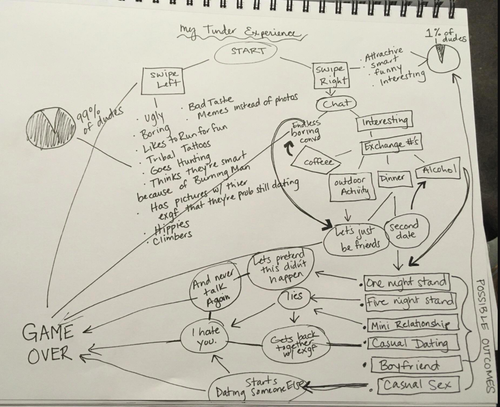 My Tinder Experience
START
1% of dudes
SWIPE
Left
SWIPE
Right
· Attractive
· smart
· funny
· Interesting
99%
of dudes
· Ugly
· Boring
· Likes to Run for fun
· Tribal Tattoos
· Goes Hunting
· Thinks they're smart
because of Burning Man
· Has pictures w/ thier
exgf that they're prob still dating
· Hippies
· Climbers
· Bad Taste
· Memes instead of photos
Chat
Endless
boring
convo
Interesting
Exchange #'s
coffeee
outdoor
Activity
Dinner
Alcohol
Lets just
be friends
second
date
Lets pretend
this didn't
happen
And never
talk
Again
lies
I hate
you.
Gets back
together
w/ exgf
Starts
Dating someone Else
GAME
OVER
One night stand
Five night stand
Mini Relationship
Casual Dating
Boyfriend
Casual Sex
POSSIBLE OUTCOMES